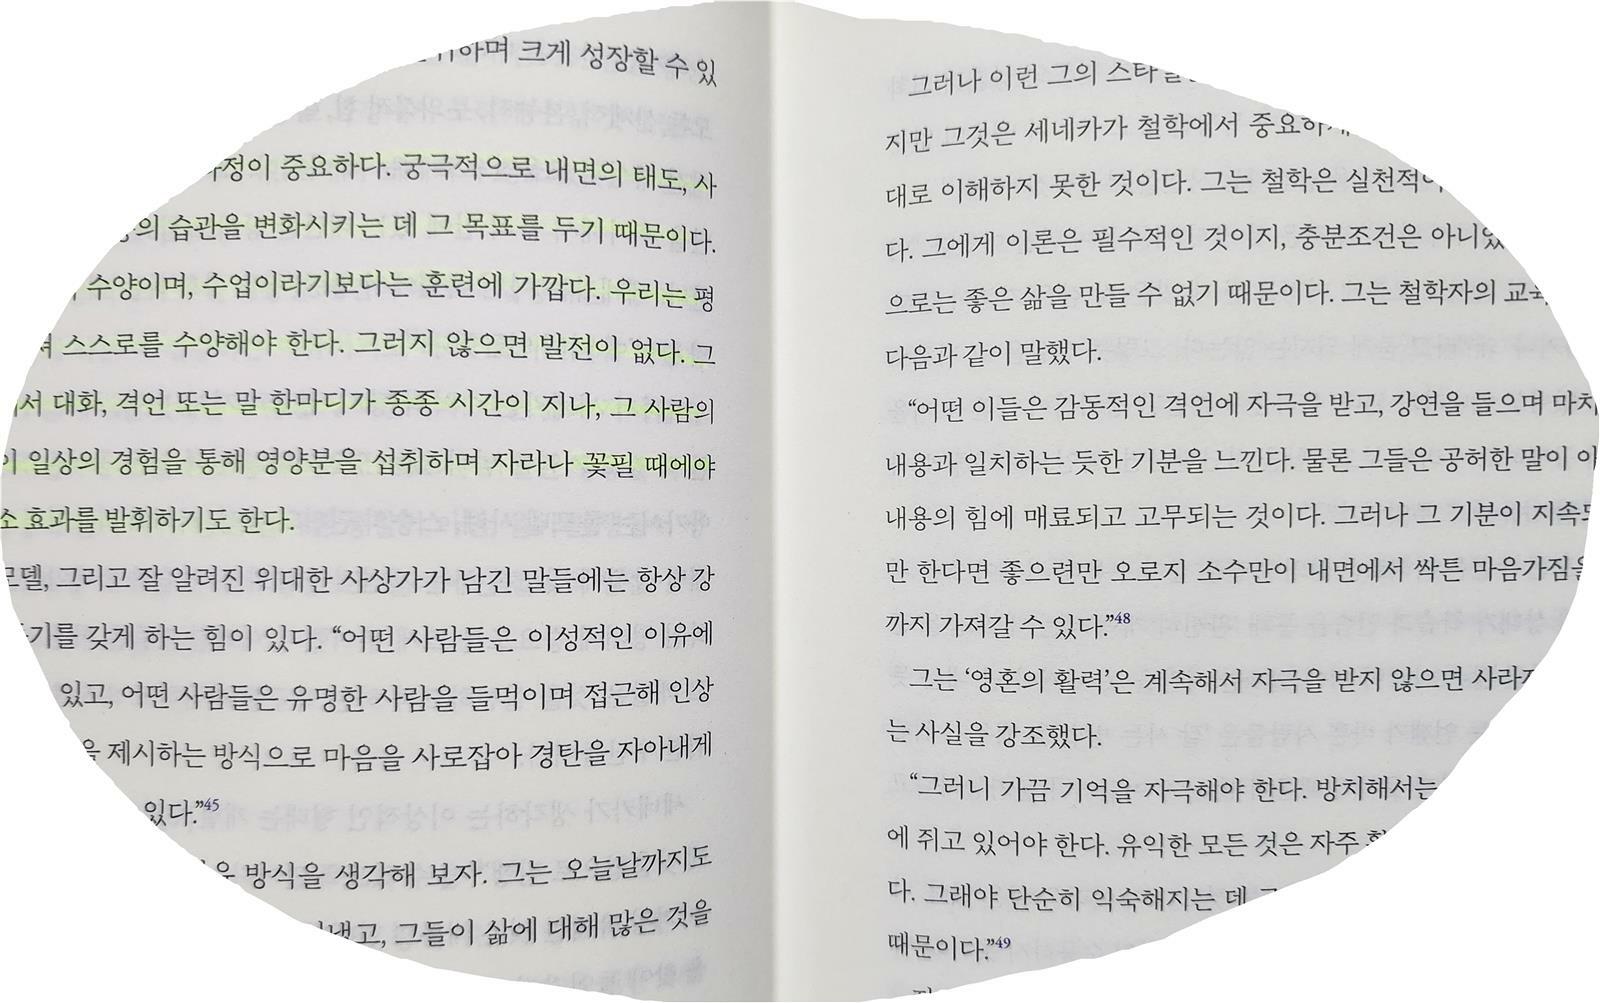 크게 성장할 수 있
중요하다. 궁극적으로 내면의 태도, 사
습관을 변화시키는 데 그 목표를 두기 때문이다.
수양이며, 수업이라기보다는 훈련에 가깝다. 우리는 평
스스로를 수양해야 한다. 그러지 않으면 발전이 없다. 그
대화, 격언 또는 말 한마디가 종종 시간이 지나, 그 사람의
일상의 경험을 통해 영양분을 섭취하며 자라나 꽃필 때에야
효과를 발휘하기도 한다.
그리고 잘 알려진 위대한 사상가가 남긴 말들에는 항상 강
갖게 하는 힘이 있다. “어떤 사람들은 이성적인 이유에
있고, 어떤 사람들은 유명한 사람을 들먹이며 접근해 인상
제시하는 방식으로 마음을 사로잡아 경탄을 자아내게
있다.”45
방식을 생각해 보자. 그는 오늘날까지도
그들이 삶에 대해 많은 것을
그러나 이런 그의
지만 그것은 세네카가 철학에서
대로 이해하지 못한 것이다. 그는 철학은
다. 그에게 이론은 필수적인 것이지, 충분조건은
으로는 좋은 삶을 만들 수 없기 때문이다. 그는 철학자의
다음과 같이 말했다.
“어떤 이들은 감동적인 격언에 자극을 받고, 강연을 들으며 마치
내용과 일치하는 듯한 기분을 느낀다. 물론 그들은 공허한 말이
내용의 힘에 매료되고 고무되는 것이다. 그러나 그 기분이
만 한다면 좋으련만 오로지 소수만이 내면에서 싹튼 마음가짐을
까지 가져갈 수 있다.”48
그는 ‘영혼의 활력’은 계속해서 자극을 받지 않으면
는 사실을 강조했다.
“그러니 가끔 기억을 자극해야 한다. 방치해서는
에 쥐고 있어야 한다. 유익한 모든 것은 자주
다. 그래야 단순히 익숙해지는 데
때문이다.”49